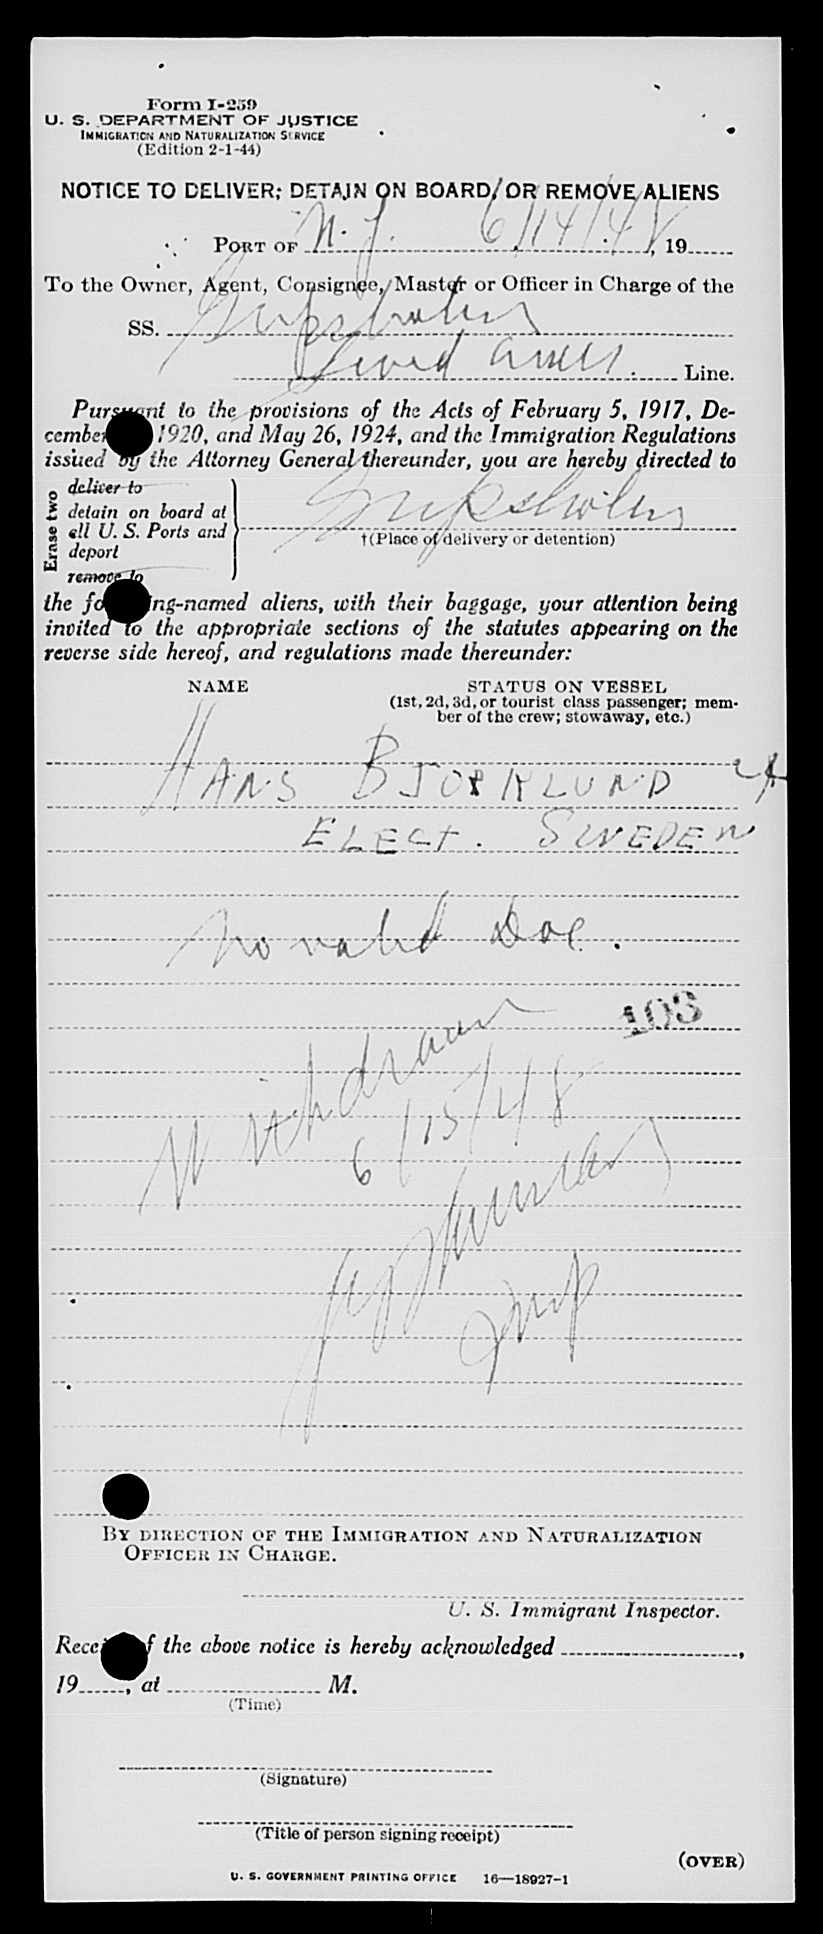 Form I-259
U. S. DEPARTMENT OF JUSTICE
IMMIGRATION AND NATURALIZATION SERVICE
(Edition 2-1-44)
NOTICE TO DELIVER; DETAIN ON BOARD, OR REMOVE ALIENS
PORT OF N. Y. 6/14/48, 19
To the Owner, Agent, Consignee, Master or Officer in Charge of the
SS. Gripsholm
Swed Amer. Line.
Pursuant to the provisions of the Acts of February 5, 1917, De-
cember 1920, and May 26, 1924, and the Immigration Regulations
issued by the Attorney General thereunder, you are hereby directed to
Erase two
deliver to
detain on board at
all U. S. Ports and
deport
remove to
Gripsholm
†(Place of delivery or detention)
the fo ing-named aliens, with their baggage, your attention being
invited to the appropriate sections of the statutes appearing on the
reverse side hereof, and regulations made thereunder:
NAME STATUS ON VESSEL
(1st, 2d, 3d, or tourist class passenger; mem-
ber of the crew; stowaway, etc.)
HANS BJORKLUND
ELECT. SWEDEN
No valid Doc.
103
Withdrawn
6/15/48
Insp
BY DIRECTION OF THE IMMIGRATION AND NATURALIZATION
OFFICER IN CHARGE.
U. S. Immigrant Inspector.
Rece f the above notice is hereby acknowledged ,
19 , at M.
(Time)
(Signature)
(Title of person signing receipt)
(OVER)
U. S. GOVERNMENT PRINTING OFFICE 16—18927-1